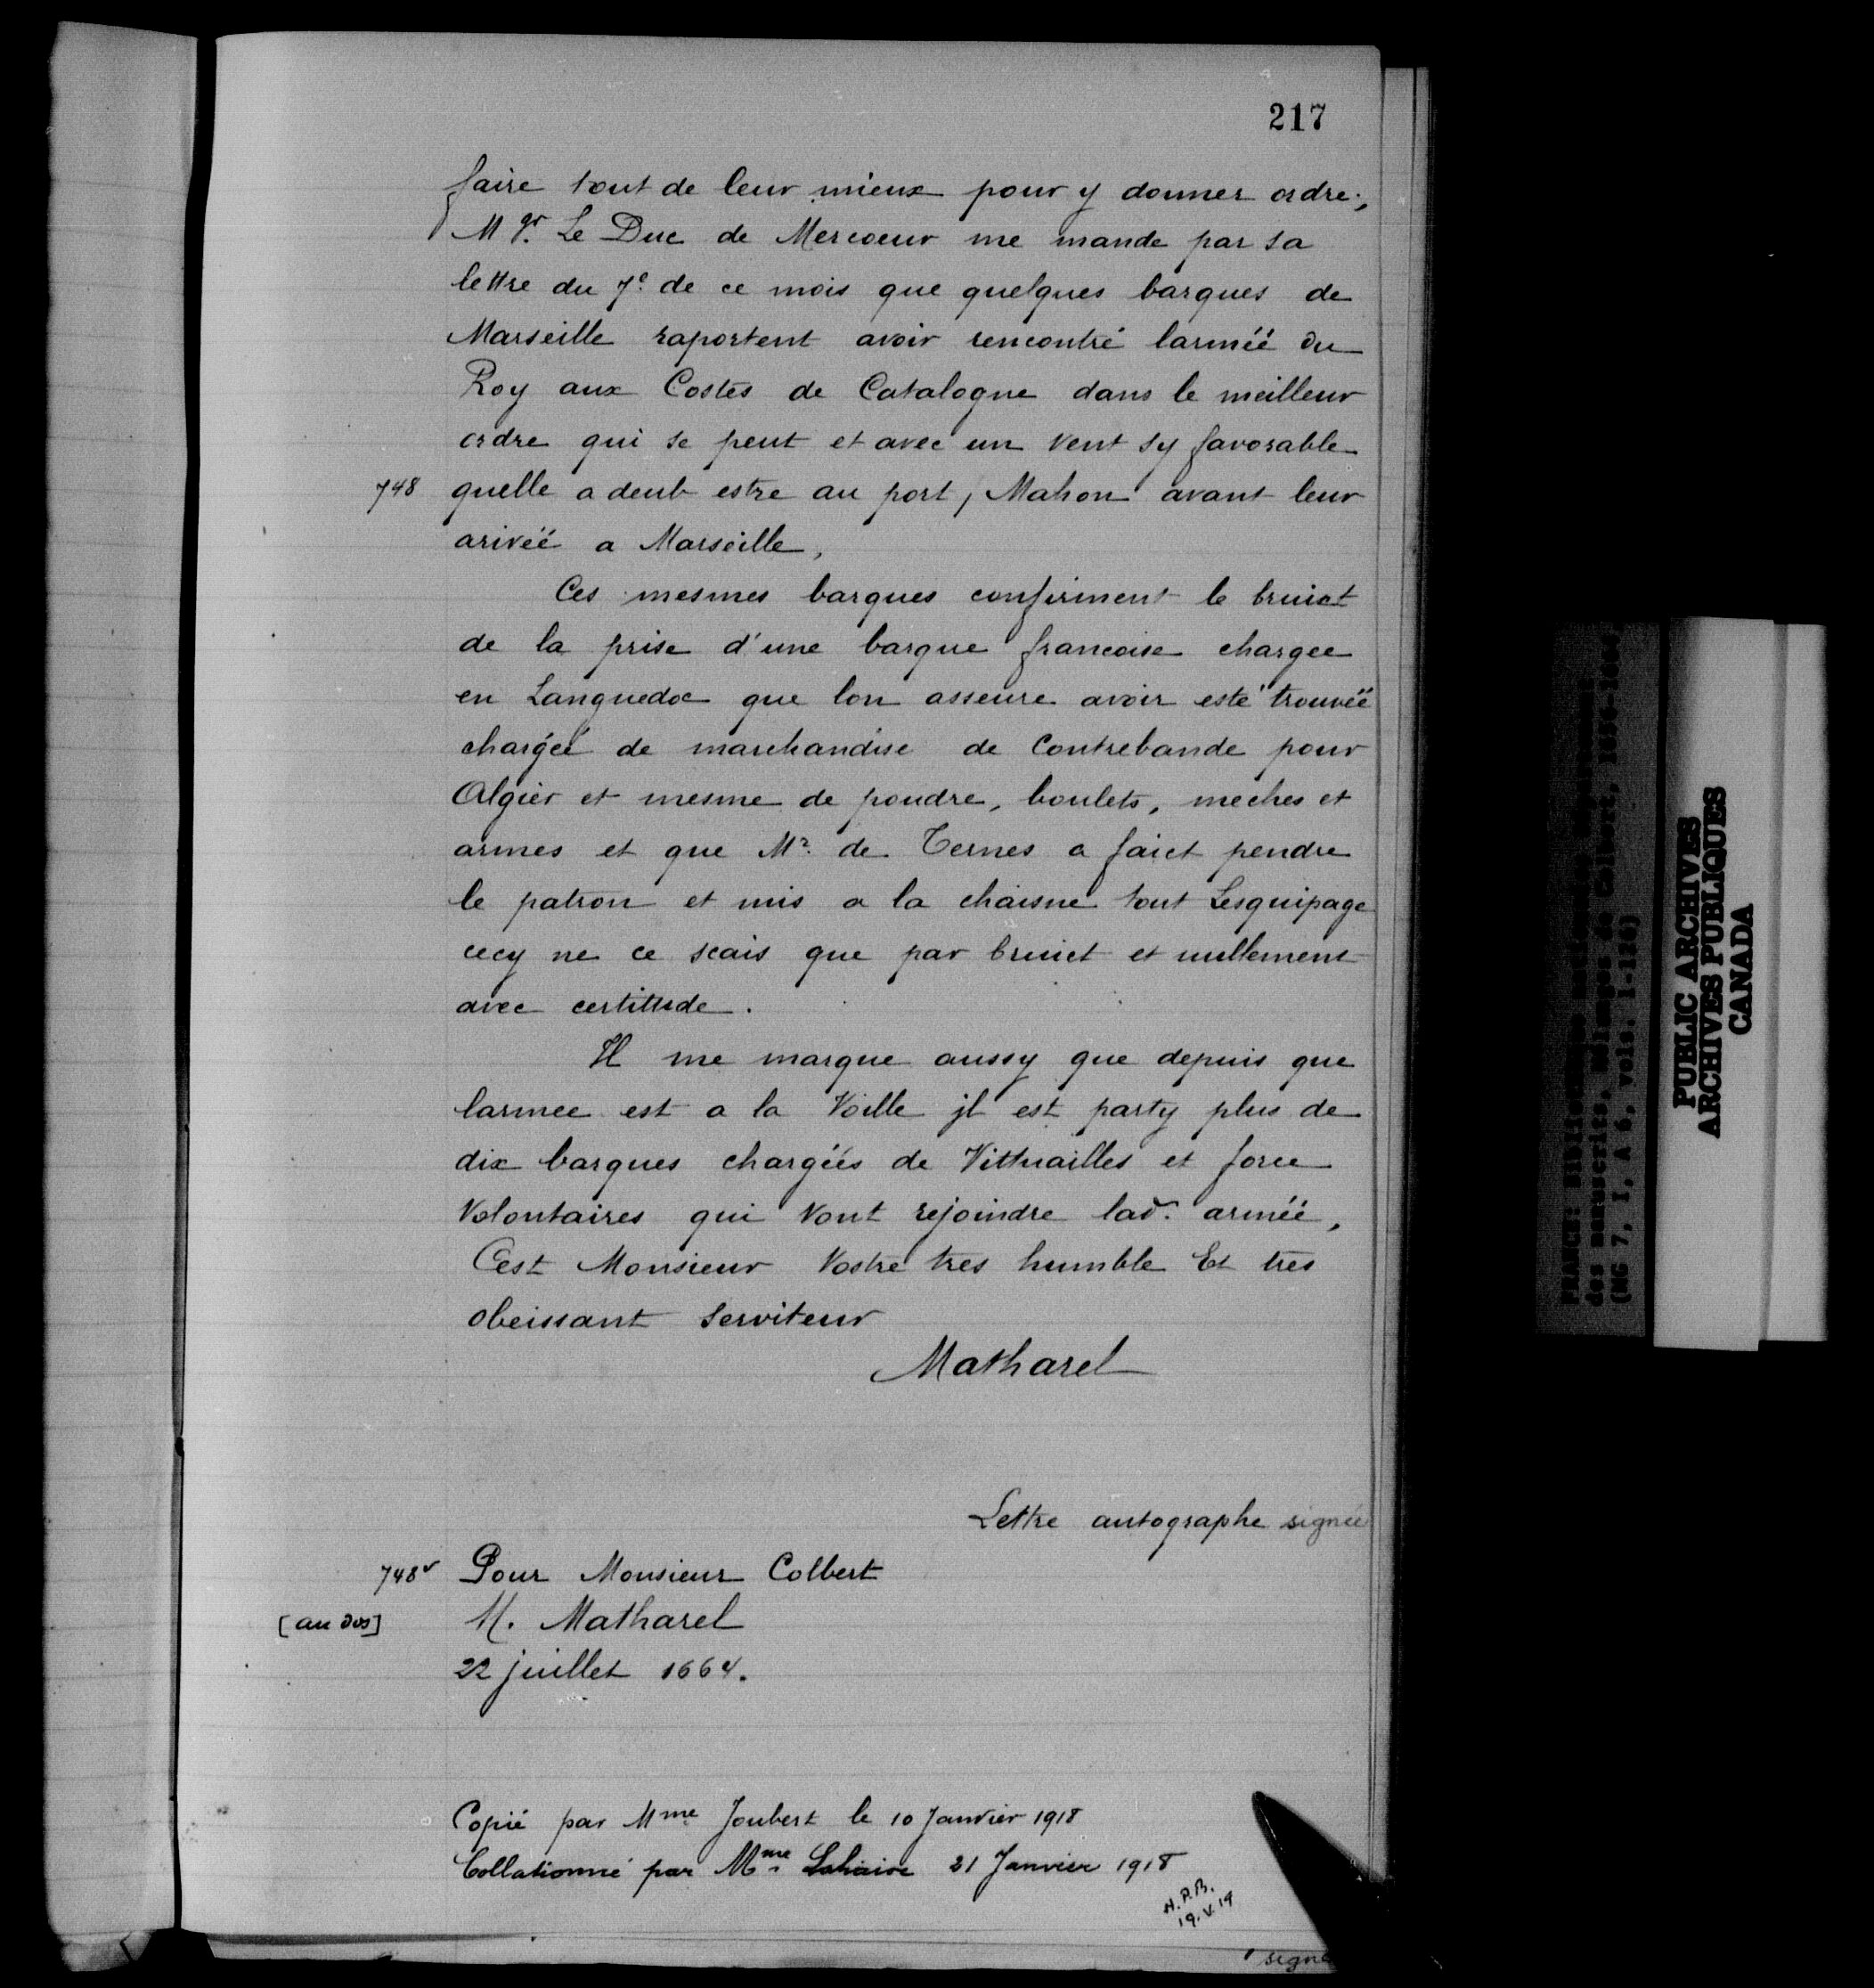 217
faire tout de leur mieux pour y donner ordre;
Mgr. Le Duc de Mercoeur me mande par sa
lettre du 7e. de ce mois que quelques barques de
Marseille raportent avoir rencontré larméé du
Roy aux Costes de Catalogne dans le meilleur
ordre qui se peut et avec un vent sy favorable
748 quelle a deub estre au port, Mahon avant leur
arivéé a Marseille,
Ces mesmes barques confirment le bruict
de la prise d'une barque francoise chargee
en Languedoc que lon asseure avoir esté trouvéé
chargéé de marchandise de Contrebande pour
Algier et mesme de poudre, boulets, meches et
armes et que Mr. de Ternes a faict pendre
le patron et mis a la chaisne tout Lesquipage
cecy ne ce scais que par bruict et nullement
avec certittude.
Il me marque aussy que depuis que
larmee est a la Voille jl est party plus de
dix barques chargéés de Vittuailles et force
Volontaires qui vont rejoindre lad. arméé,
Cest Monsieur Vostre tres humble Et tres
obeissant Serviteur
Matharel
Lettre autographe signée
748v Pour Monsieur Colbert
[au dos] M. Matharel
22 juillet 1664.
Copié par Mme Joubert le 10 Janvier 1918
Collationné par Mme Lahaire 21 Janvier 1918
H.P.B.
19.V.19
signé
PUBLIC ARCHIVES
ARCHIVES PUBLIQUES
CANADA
(MG 7, I, A 6, vols. 1-126)